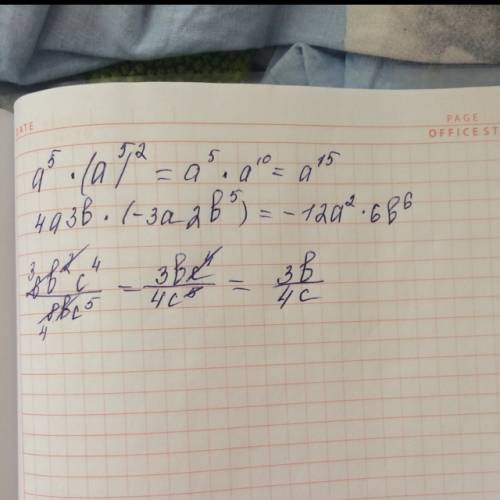 DATE
PAGE
OFFICE ST
a⁵ · (a⁵)² = a⁵ · a¹⁰ = a¹⁵
4a3b · (-3a2b⁵) = -12a² · 6b⁶
6b²c⁴/8bc⁵ = 3bc⁴/4c⁵ = 3b/4c